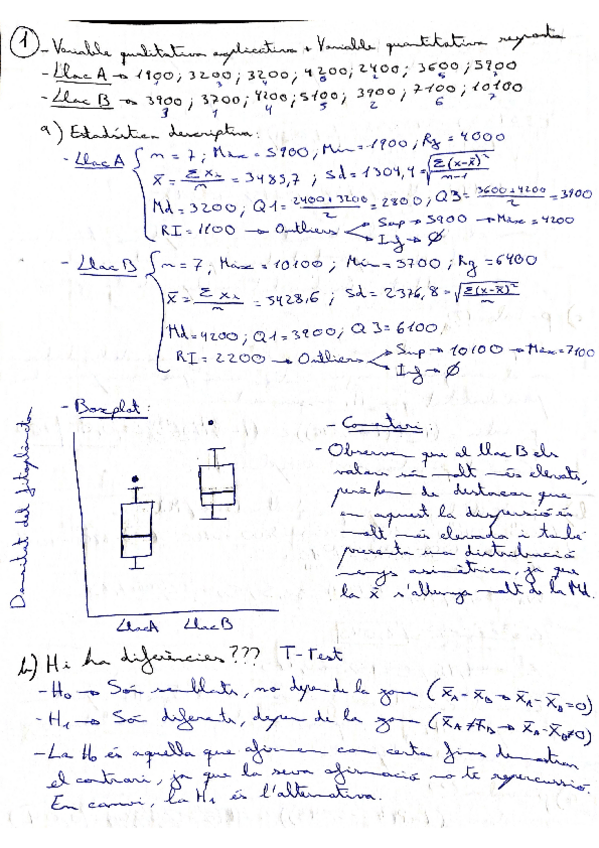 1 - Variable qualitativa explicativa + Variable quantitativa resposta
- Llac A → 1900; 3200; 3200; 4200; 2400; 3600; 5900
- Llac B → 3900; 3700; 4200; 5100; 3900; 7100; 10100
3 1 4 5 2 6 7
a) Estadística descriptiva:
- Llac A { n = 7; Max = 5900; Min = 1900; Rg = 4000
x̄ = Σxᵢ/n = 3485,7; Sd = 1304,4 = √(Σ(x-x̄)²/n-1)
Md = 3200; Q1 = (2400+3200)/2 = 2800; Q3 = (3600+4200)/2 = 3900
RI = 1100 → Outliers → Sup → 5900 → Màx = 4200
→ Inf → Ø
- Llac B { n = 7, Max = 10100; Min = 3700; Rg = 6400
x̄ = Σxᵢ/n = 5428,6; Sd = 2376,8 = √(Σ(x-x̄)²/n)
Md = 4200; Q1 = 3900; Q3 = 6100
RI = 2200 → Outliers → Sup → 10100 → Màx = 7100
→ Inf → Ø
- Boxplot:
Densitat del fitoplàncton
Llac A Llac B
- Comentari:
- Observem que al llac B els
valors són molt més elevats,
però hem de destacar que
en aquest la dispersió és
molt més elevada i també
presenta una distribució
menys asimètrica, ja que
la x̄ s'allunya molt de la Md.
b) Hi ha diferències??? T-Test
- H₀ → Són semblants, no depen de la zona (x̄A - x̄B → x̄A - x̄B = 0)
- H₁ → Són diferents, depen de la zona (x̄A ≠ x̄B → x̄A - x̄B ≠ 0)
- La H₀ és aquella que afirmem com certa fins demostrar
el contrari, ja que la seva afirmació no té repercussió.
En canvi, la H₁ és l'alternativa.